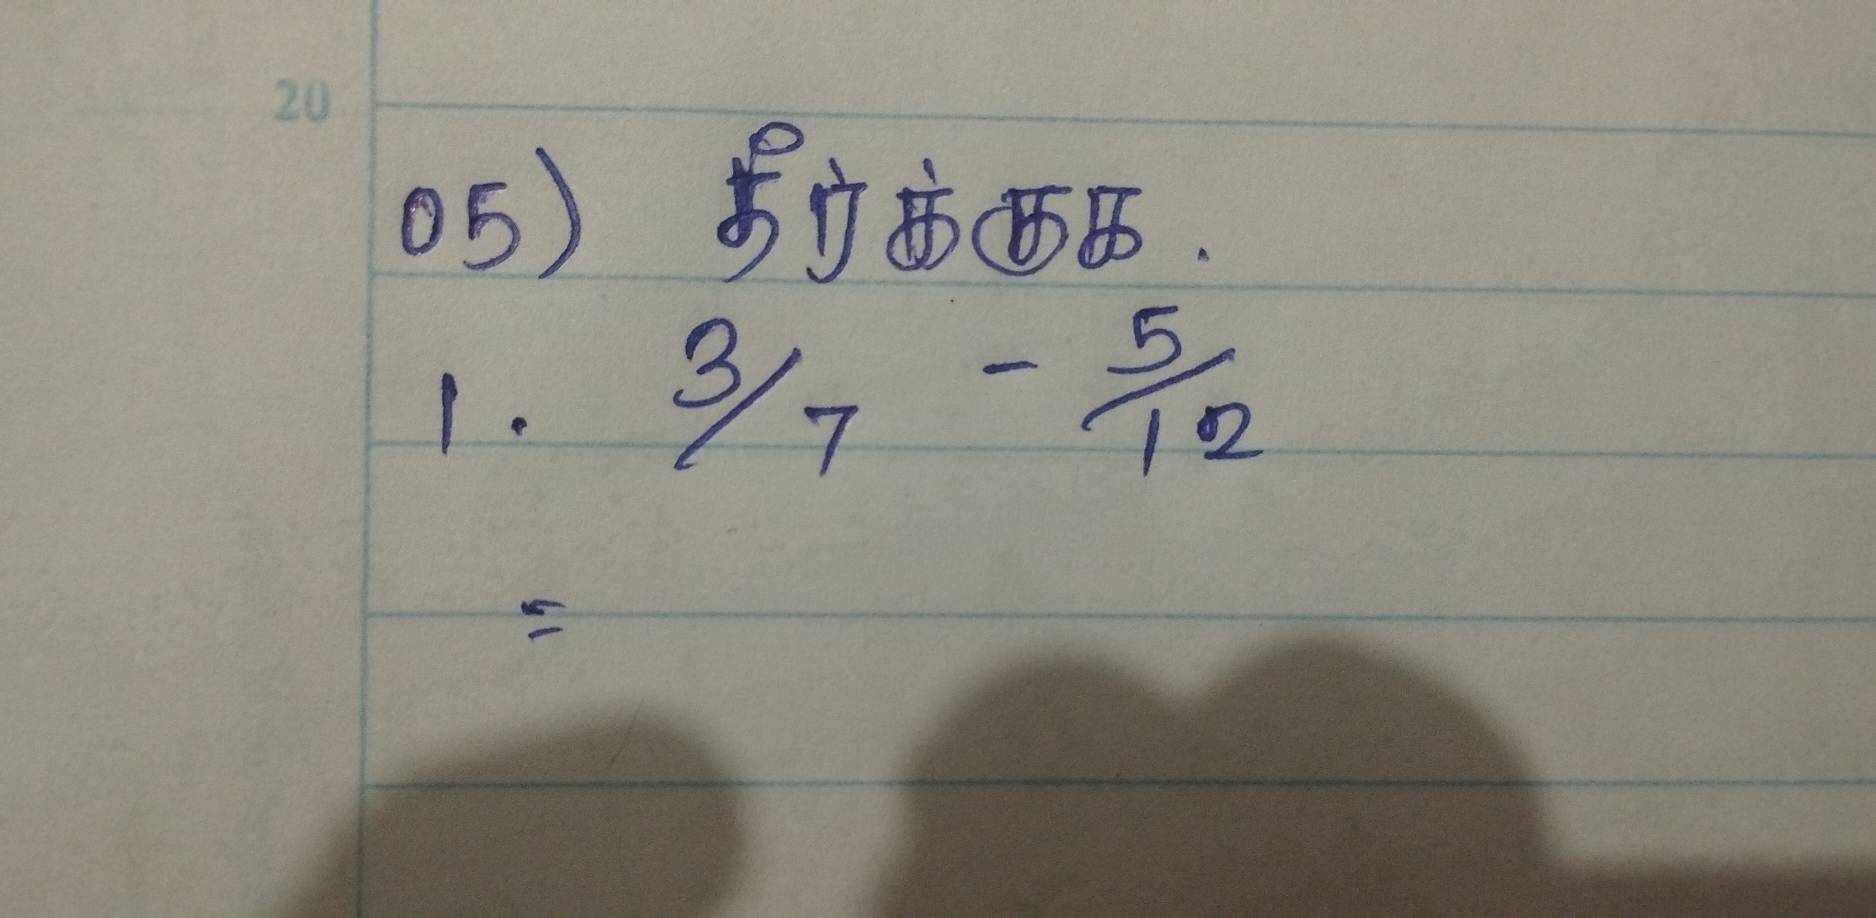 20
05) தீர்க்குக.
1. 3/7 - 5/12
=